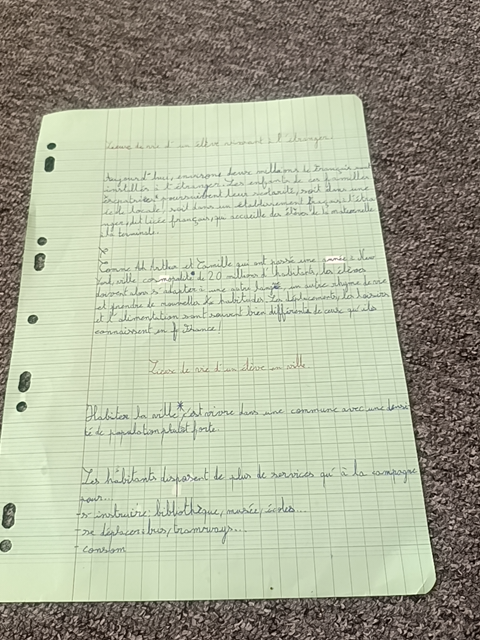 Lieux de vie d'un élève vivant à l'étranger
Aujourd'hui, environ deux millions de Français sont
installés à l'étranger. Les enfants de ces familles
expatriées* poursuivent leur scolarité, soit dans une
école locale, soit dans un établissement français à l'étran
ger, dit lycée français, qui accueille des élèves de la maternelle
à la terminale.
Comme Arthur et Camille qui ont passé une année à New
York, ville cosmopolite* de 20 millions d'habitants, les élèves
doivent alors s'adapter à une autre langue, un autre rhyme de vie
et prendre de nouvelles habitudes. Les déplacements, les loisirs
et l'alimentation sont souvent bien différents de ceux qu'ils
connaissent en France!
Lieux de vie d'un élève en ville
Habiter la ville* c'est vivre dans une commune avec une densi
té de population plutôt forte.
Les habitants disposent de plus de services qu'à la campagne
pour...
-s'instruire: bibliothèque, musée, écoles...
-se déplacer: bus, tramways...
- consom